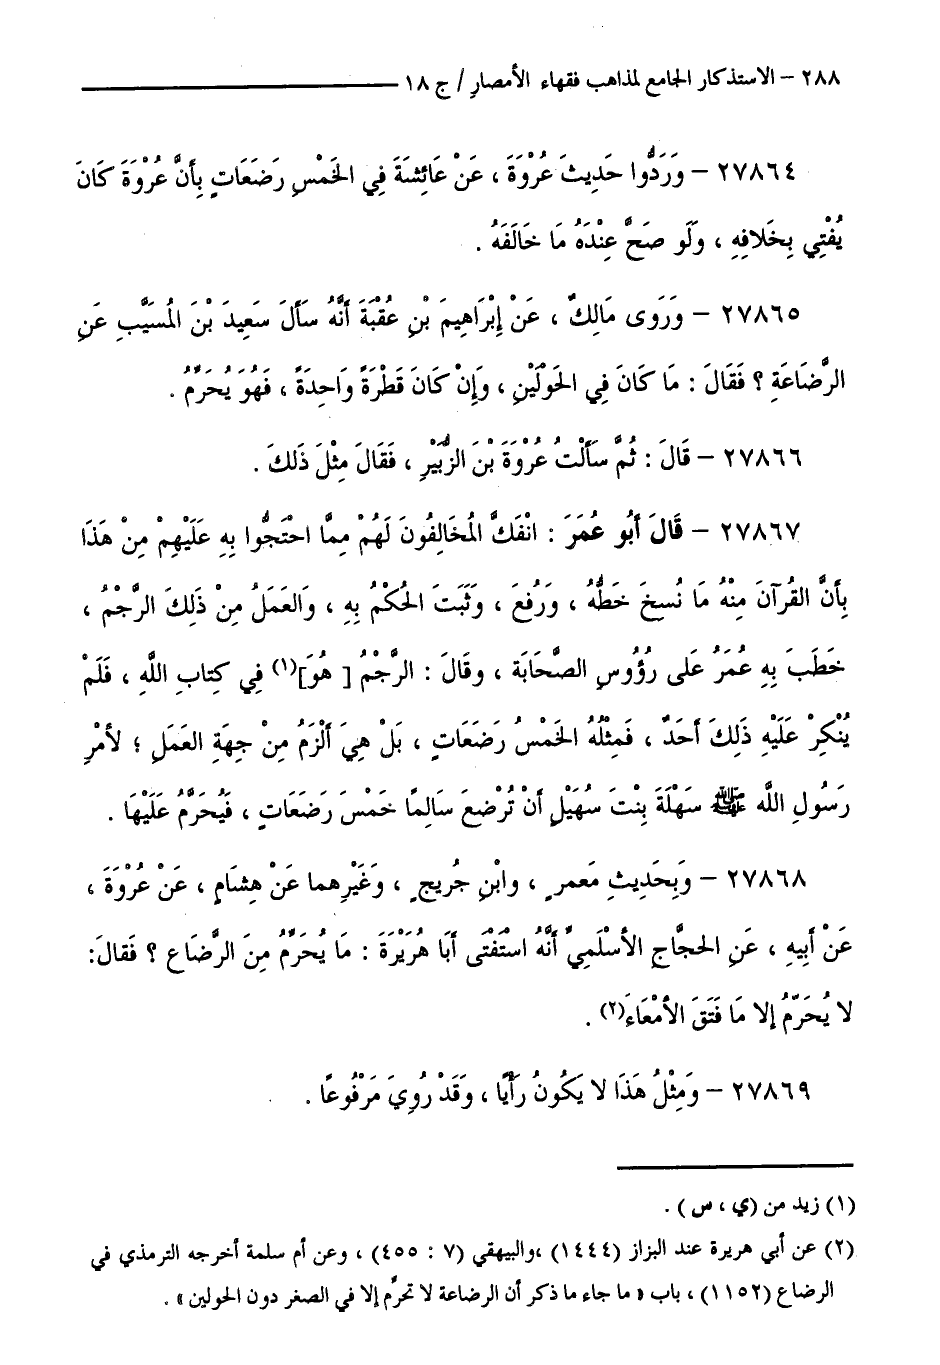 ٢٨٨ – الاستذكار الجامع لمذاهب فقهاء الأمصار / ج ١٨
٢٧٨٦٤ – وَرَدُّوا حَدِيثَ عُرْوَةَ ، عَنْ عَائِشَةَ فِي الخَمْسِ رَضَعَاتٍ بِأَنَّ عُرْوَةَ كَانَ
يُفْتِي بِخَلافِهِ ، وَلَو صَحَّ عِنْدَهُ مَا خَالَفَهُ .
٢٧٨٦٥ – وَرَوَى مَالِكٌ ، عَنْ إِبْرَاهِيمَ بْنِ عُقْبَةَ أَنَّهُ سَأَلَ سَعِيدَ بْنَ المُسَيَّبِ عَنِ
الرَّضَاعَةِ ؟ فَقَالَ : مَا كَانَ فِي الحَوْلَيْنِ ، وَإِنْ كَانَ قَطْرَةً وَاحِدَةً ، فَهُوَ يُحَرِّمُ .
٢٧٨٦٦ – قَالَ : ثُمَّ سَأَلْتُ عُرْوَةَ بْنَ الزُّبَيْرِ ، فَقَالَ مِثْلَ ذَلكَ .
٢٧٨٦٧ – قَالَ أَبُو عُمَرَ : انْفَكَّ المُخَالِفُونَ لَهُمْ مِمَّا احْتَجُّوا بِهِ عَلَيْهِمْ مِنْ هَذَا
بِأَنَّ القُرآنَ مِنْهُ مَا نُسِخَ خَطُّهُ ، وَرُفعَ ، وَثَبَتَ الحُكْمُ بِهِ ، وَالعَمَلُ مِنْ ذَلِكَ الرَّجْمُ ،
خَطَبَ بِهِ عُمَرُ عَلى رُؤُوسِ الصَّحَابَة ، وَقَالَ : الرَّجْمُ [ هُوَ](١) فِي كِتابِ اللَّهِ ، فَلَمْ
يُنْكِرْ عَلَيْهِ ذَلِكَ أَحَدٌ ، فَمِثْلُهُ الخَمْسُ رَضَعَاتٍ ، بَلْ هِيَ أَلْزَمُ مِنْ جِهَةِ العَمَلِ ؛ لأَمْرِ
رَسُولِ اللَّه ﷺ سَهْلَةَ بِنْتَ سُهَيْلٍ أَنْ تُرْضعَ سَالِمًا خَمْسَ رَضَعَاتٍ ، فَيُحَرَّمُ عَلَيْهَا .
٢٧٨٦٨ – وَبِحَدِيثِ مَعمرٍ ، وابْنِ جُريجٍ ، وَغَيْرِهما عَنْ هِشَامٍ ، عَنْ عُرْوَةَ ،
عَنْ أَبِيهِ ، عَنِ الحجَّاجِ الأسْلَمِيِّ أَنَّهُ اسْتَفْتَى أبَا هُرَيْرَةَ : مَا يُحَرِّمُ مِنَ الرَّضَاعِ ؟ فَقالَ:
لا يُحَرِّمُ إلا مَا فَتَقَ الأَمْعَاءَ(٢) .
٢٧٨٦٩ – وَمِثْلُ هَذَا لا يَكُونُ رَأْيًا ، وَقَدْ رُوِيَ مَرْفُوعًا .
(١) زيد من (ي ، س ) .
(٢) عن أبي هريرة عند البزاز (١٤٤٤) ،والبيهقي (٧ : ٤٥٥) ، وعن أم سلمة أخرجه الترمذي في
الرضاع (١١٥٢) ، باب « ما جاء ما ذكر أن الرضاعة لا تحرِّم إلا في الصغر دون الحولين » .